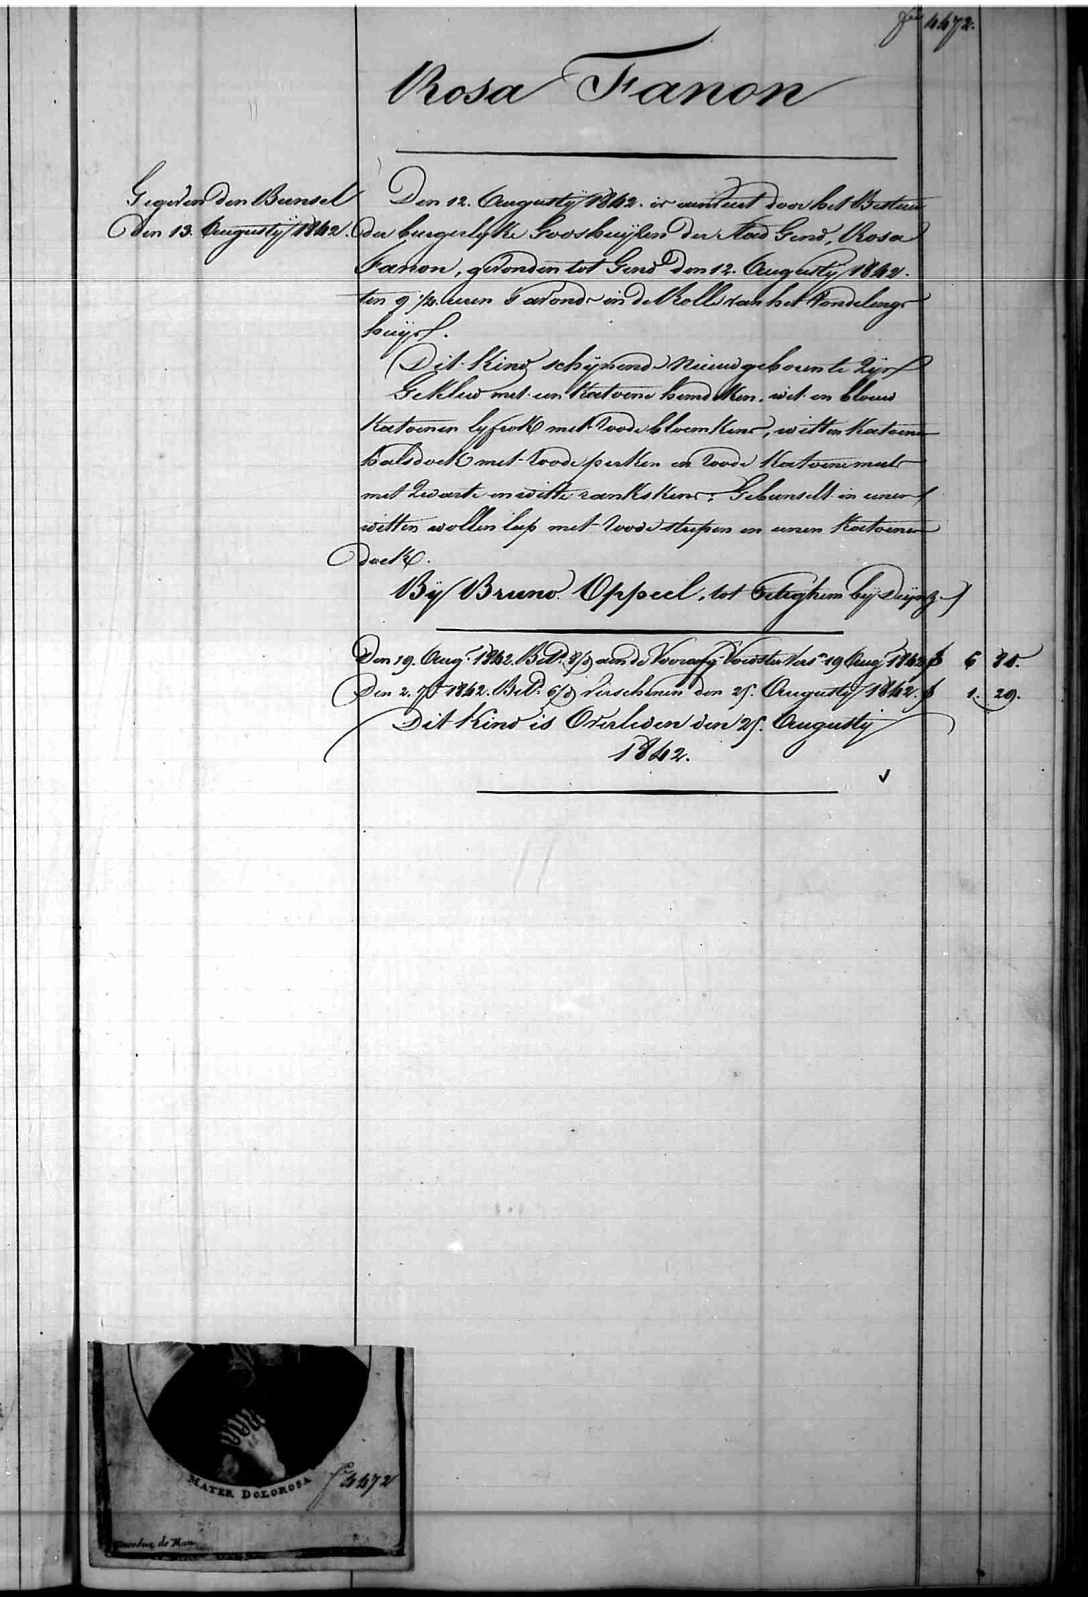 fo 4472.
Rosa Fanon
Gegeven den Bunsel
den 13. Augusty 1842.
Den 12. Augusty 1842. is aenveert door het Bestuer
der burgerlyke Godshuyzen der Stad Gend, Rosa
Fanon, gevonden tot Gend den 12. Augusty 1842.
ten 9 1/2 uren s'avonds in de Rolle van het Vondelings
huys.
Dit Kind schynende Nieuwgeboren te Zyn
Gekleed met een Katoene hemdeken, wit en blauw
Katoenen lyfrok met roode bloemkens, witten Katoenen
halsdoek met roode perken en roode Katoene muts
met Zwarte en witte rankskens; Gebunselt in eenen
witten wollen lap met roode strepen en eenen Katoenen
doek.
By Bruno Oppeel, tot Peteghem by Deynze
Den 19. Augt 1842. Betd aen de Voorzorg Vers 19 Augt 1842 f 6 81.
Den 2. 7r 1842. Betd Verschenen den 25. Augusty 1842. f 1. 29.
Dit Kind is Overleden den 25. Augusty
1842.
MATER DOLOROSA
fo 4472